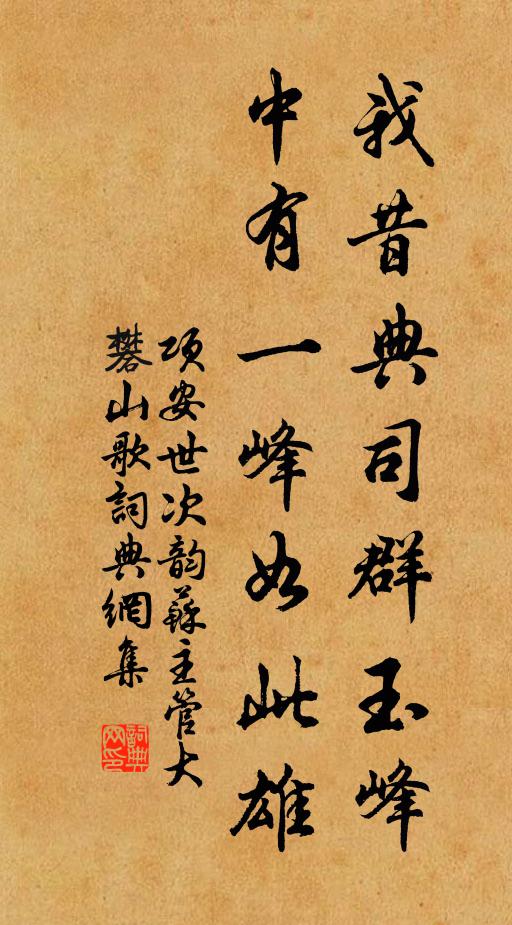 我昔典司群玉峰
中有一峰如此雄
项安世次韵苏主管大
礬山歌詞典網集
詞典網印